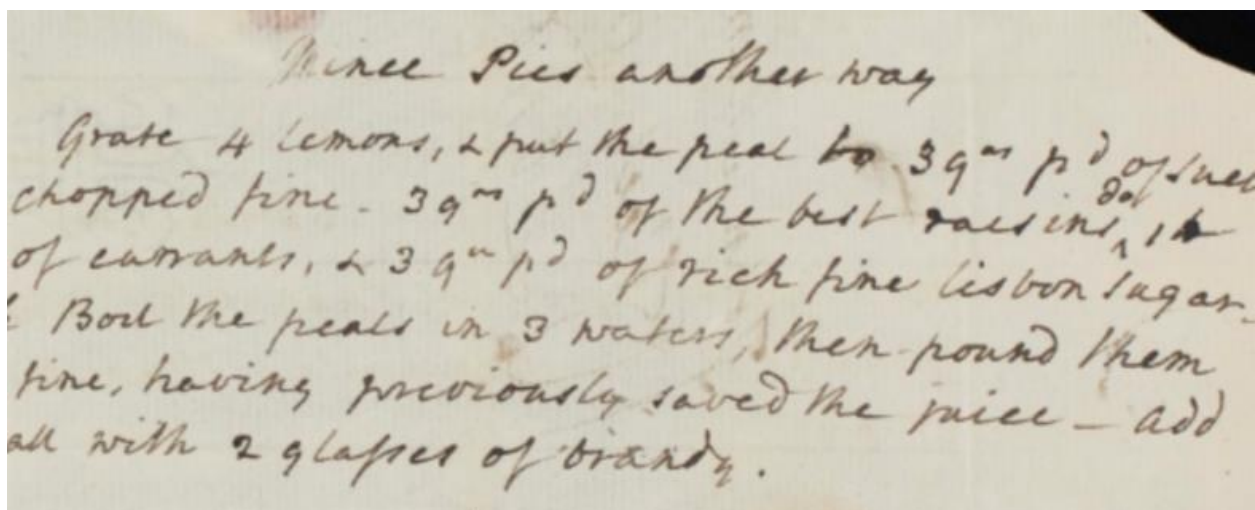 Mince Pies another way
Grate 4 lemons, & put the peal to 3 qrs pd of suet
chopped fine - 3 qrs pd of the best raisins do, 1
of currants, & 3 qrs pd of rich fine lisbon sugar -
Boil the peals in 3 waters, then pound them
fine, having previously saved the juice - add
all with 2 glasses of brandy.